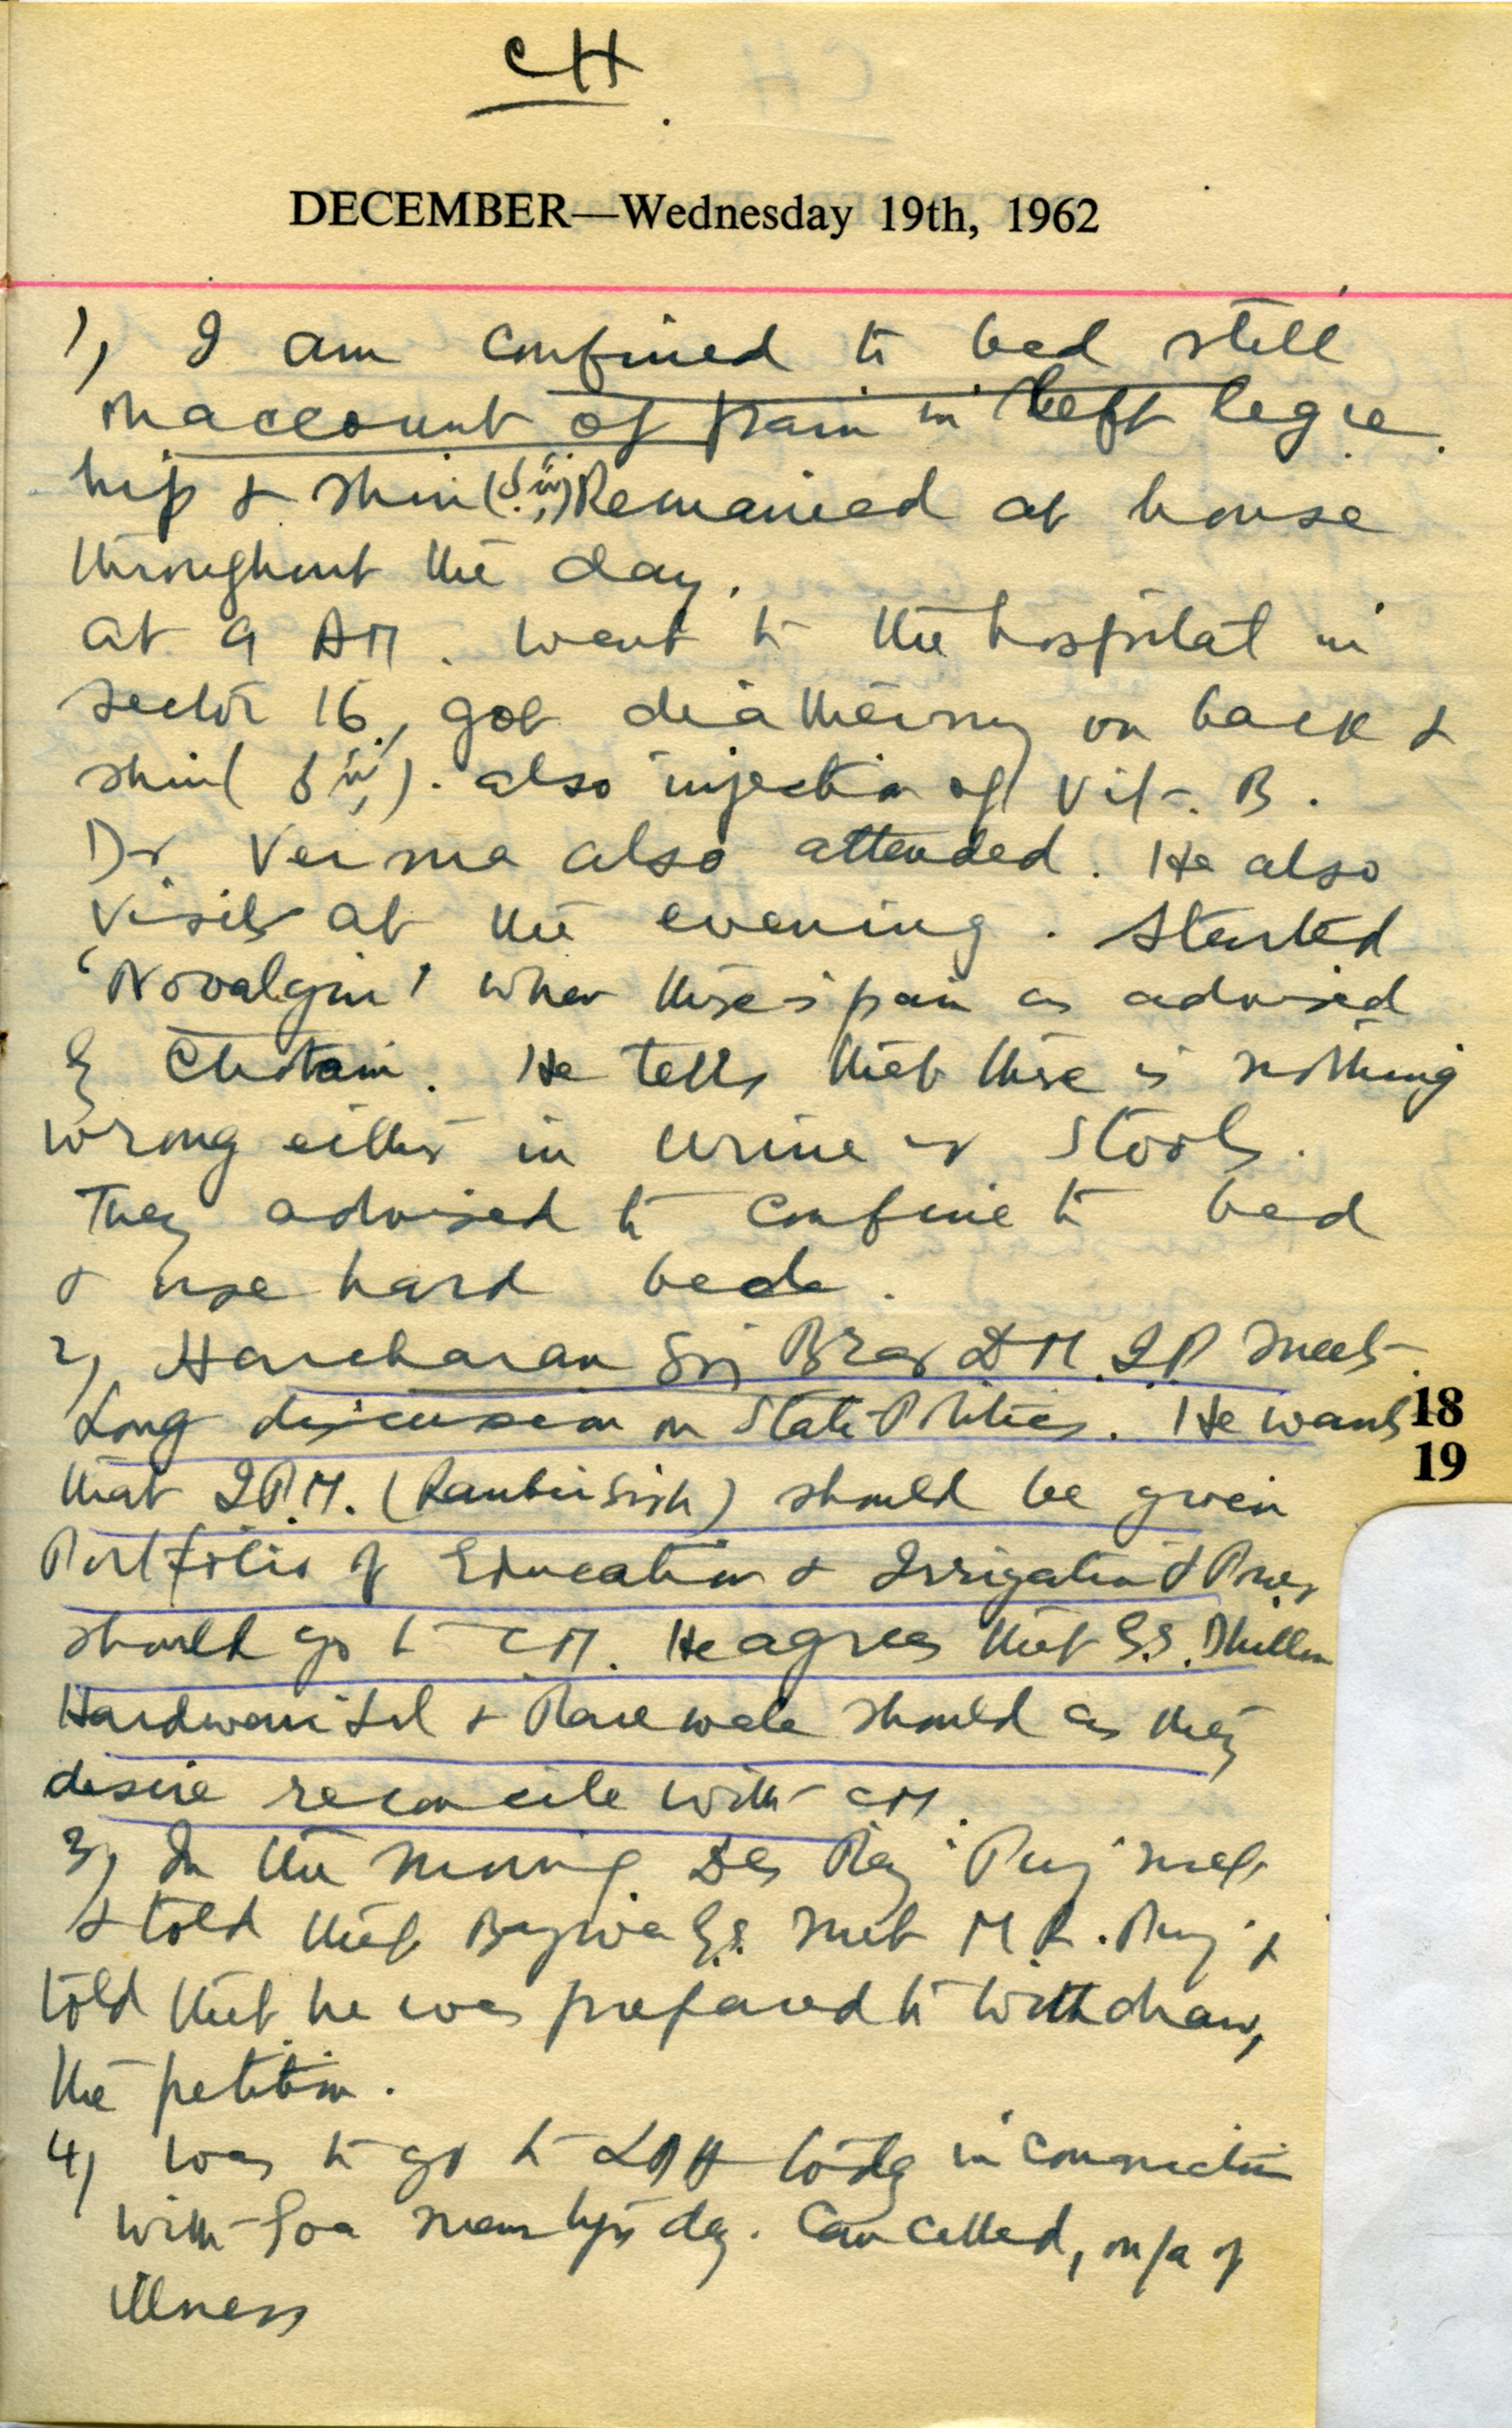 CH
DECEMBER—Wednesday 19th, 1962
1) I am confined to bed still
on account of pain in left leg i.e.
hip & shin Remained at house
throughout the day.
at 9 AM. went to the hospital in
sector 16, got diathermy on back &
shin. also injection of Vit. B.
Dr Verma also attended. He also
visits at the evening. Started
'Novalgin' when there is pain as advised
He tells that there is nothing
wrong either in urine or stools.
They advised to confine to bed
& use hard bed.
2) Harcharan Sgh Brar DM. I.P. meets.
Long discussion on State Politics. He wants
that I.P.M. (Ranbir Singh) should be given
Portfolio of Education & Irrigation & Power
should go to CM. He agrees that G.S. Dhillon
Hardwari Lal & Rarewala should as they
desire reconcile with CM.
3) In the morning Des Raj Puri met
& told that Bajwa G.S. met M.R. Puri &
told that he was prepared to withdraw,
the petition.
4) Was to go to LDH today in connection
with Goa martyrs day. Cancelled, on/a of
illness
18
19